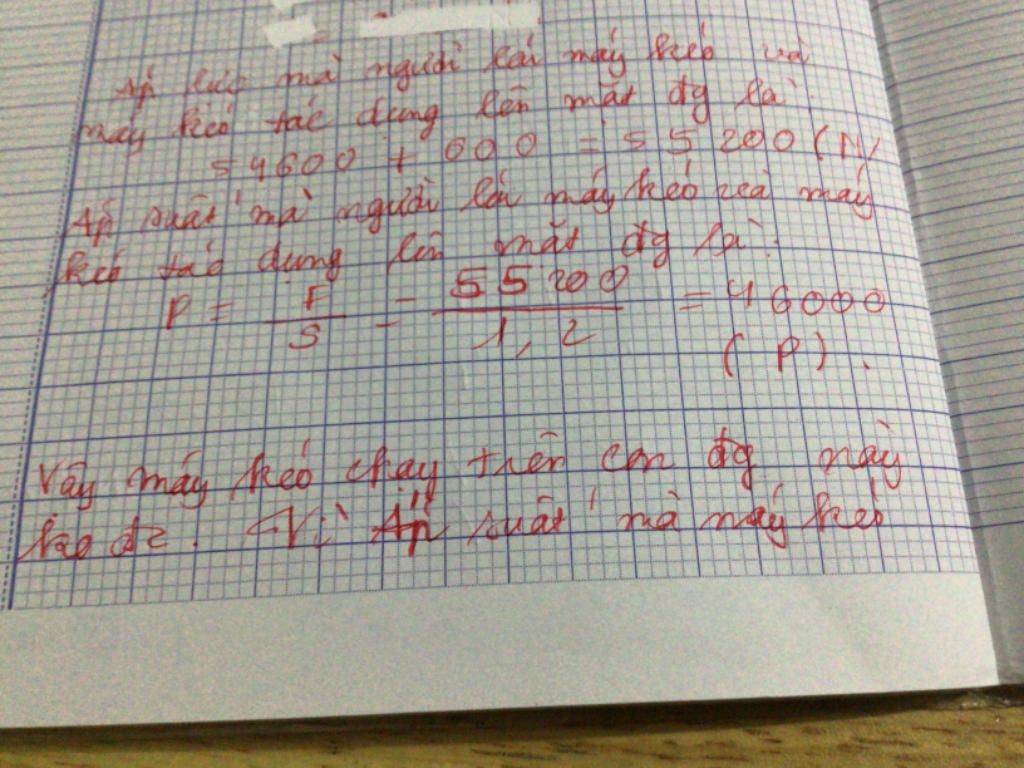 Áp lực mà người lái máy kéo và
máy kéo tác dụng lên mặt đg là:
54600 + 600 = 55200 (N)
Áp suất mà người lái máy kéo và máy
kéo tác dụng lên mặt đg là:
P = F/S = 55200/1,2 = 46000
(P).
Vậy máy kéo chạy trên con đg này
ko đc. Vì Áp suất mà máy kéo